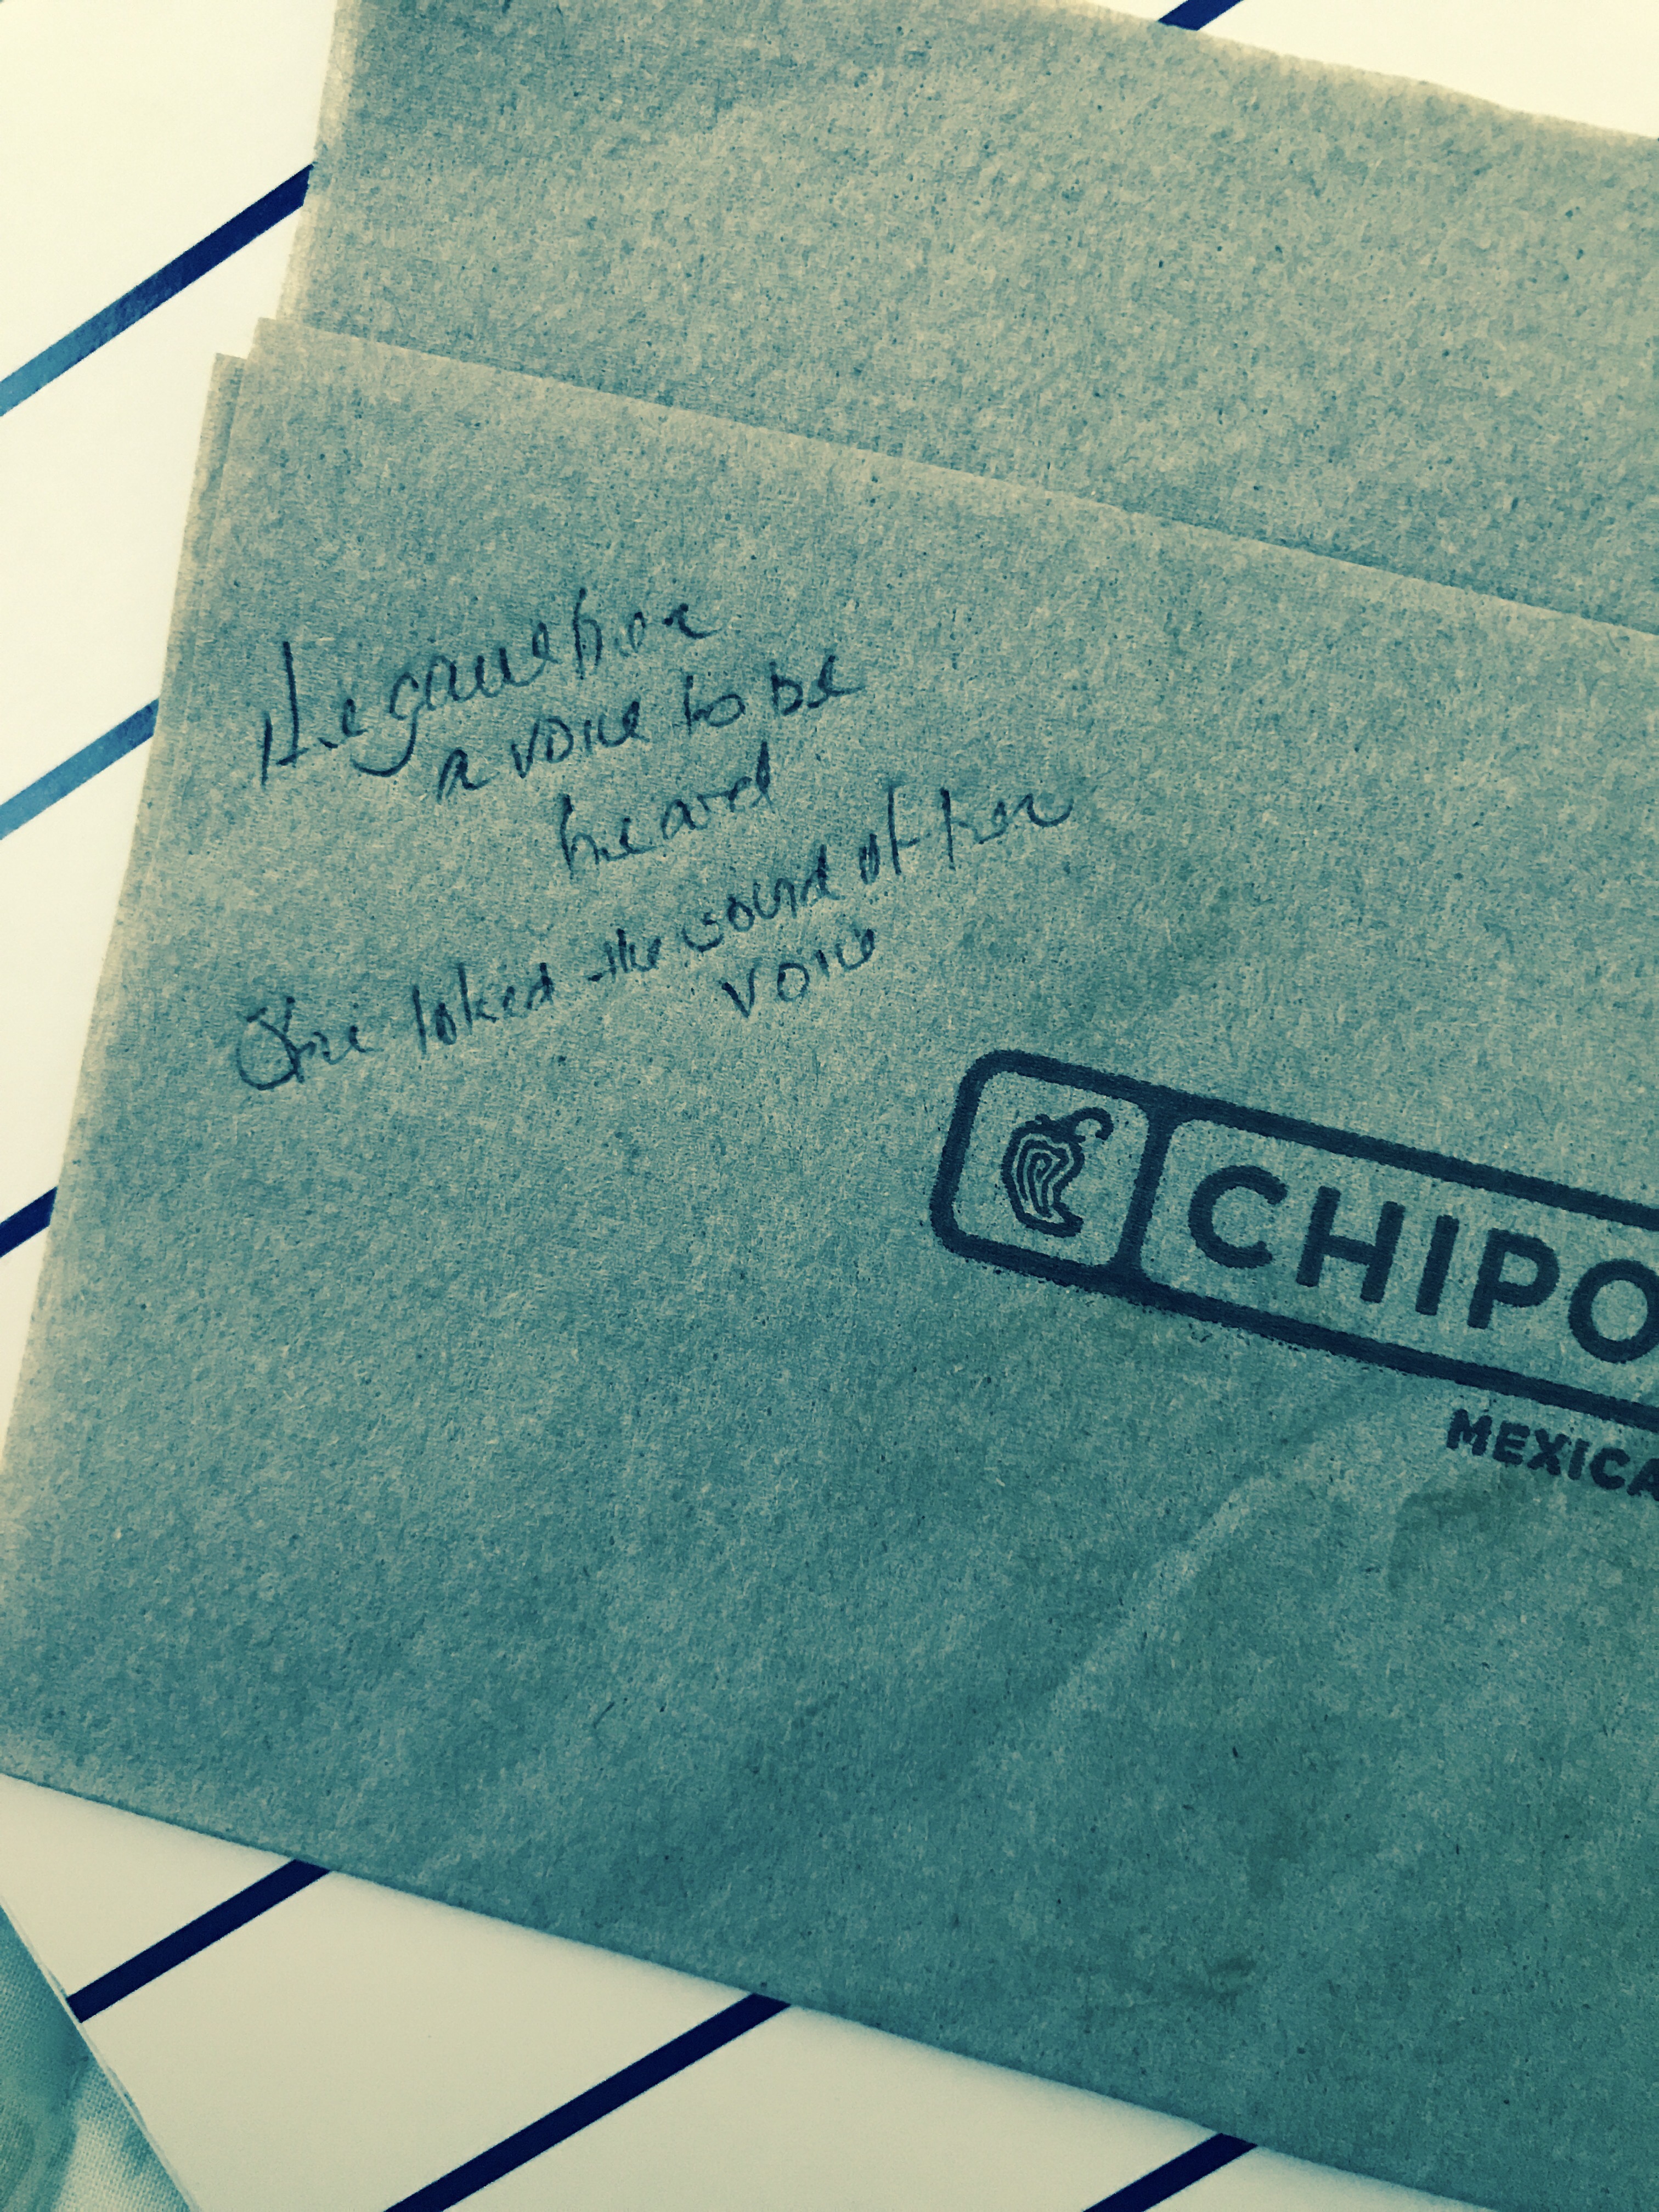 He gave her
a voice to be
heard
She liked the sound of her
voice
CHIPO
MEXICA